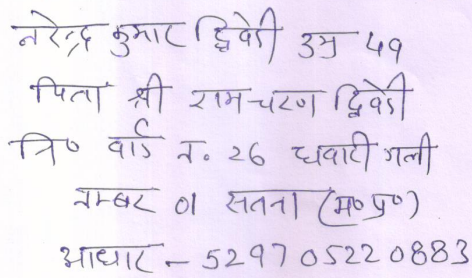 नरेन्द्र कुमार द्विवेदी उम्र 49
पिता श्री रामचरण द्विवेदी
नि० वार्ड न. 26 घवारी गली
नम्बर 01 सतना (म०प्र०)
आधार - 5297 0522 0883